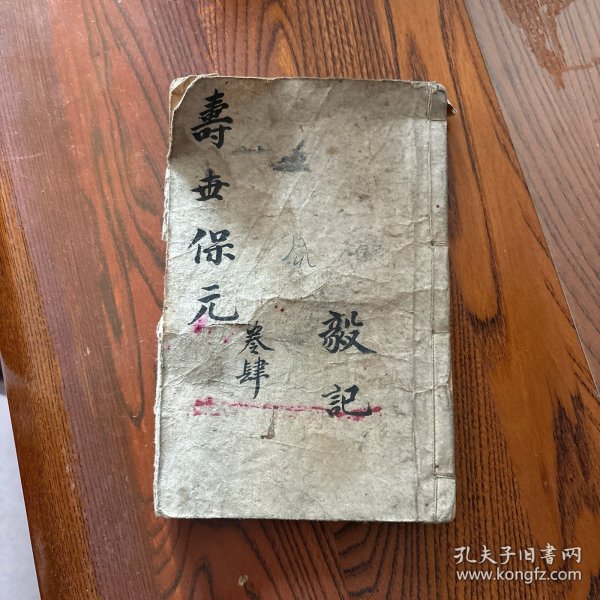 壽世保元
卷肆
毅記
孔夫子旧书网
www.kongfz.com